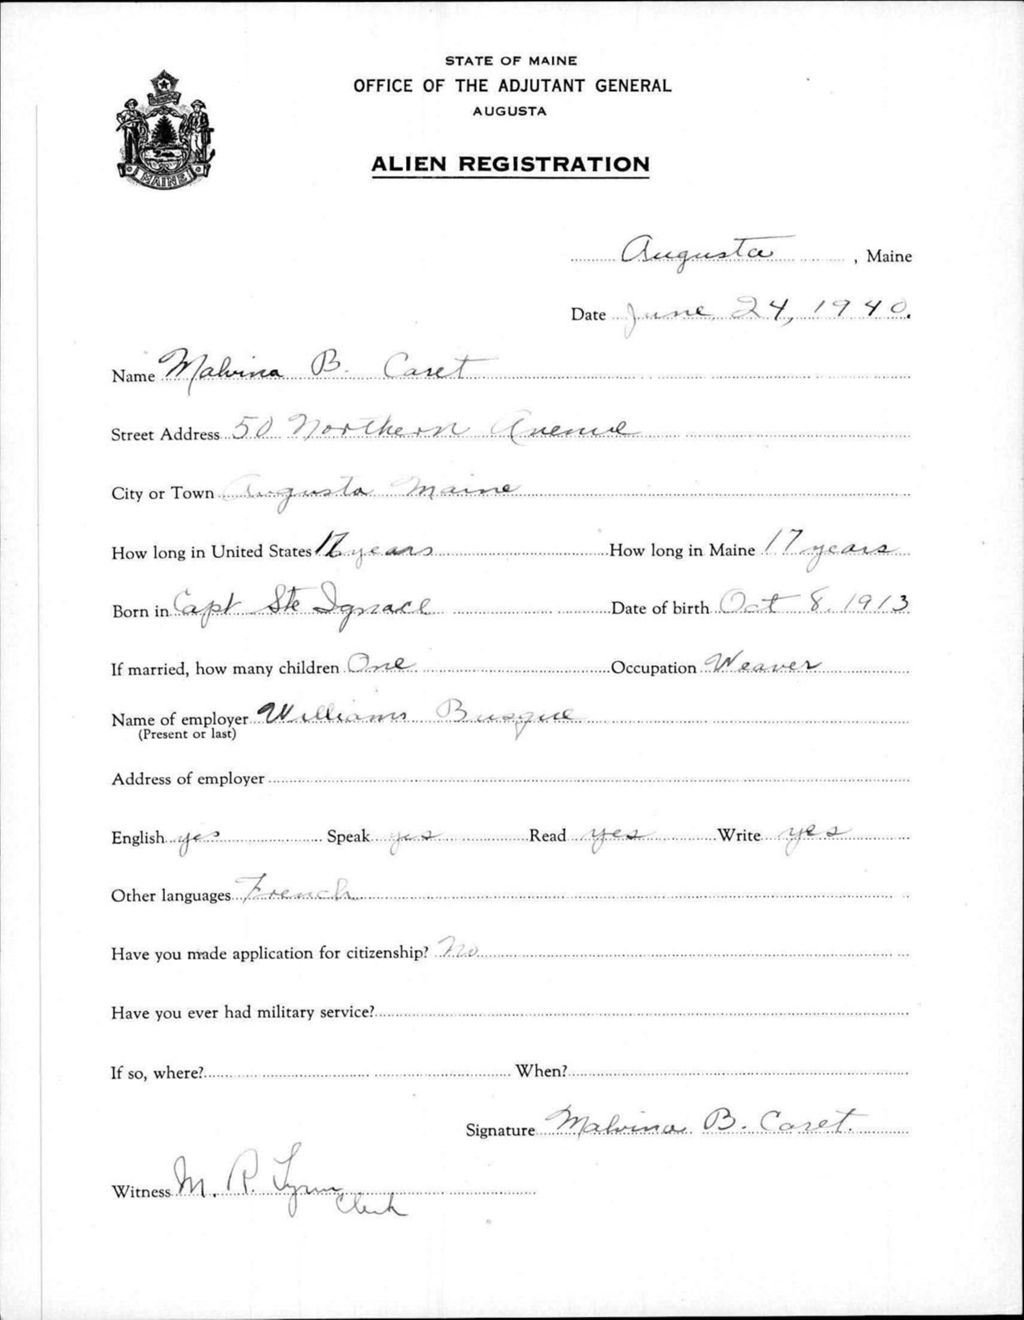 STATE OF MAINE
OFFICE OF THE ADJUTANT GENERAL
AUGUSTA
ALIEN REGISTRATION
MAINE
Augusta, Maine
Date June 24, 1940.
Name Malvina B. Caret
Street Address 50 Northern Avenue
City or Town Augusta Maine
How long in United States 17 years How long in Maine 17 years
Born in Capt Ste Ignace Date of birth Oct 8, 1913
If married, how many children One Occupation Weaver
Name of employer Williams Busque
(Present or last)
Address of employer
English yes Speak yes Read yes Write yes
Other languages French
Have you made application for citizenship? No
Have you ever had military service?
If so, where? When?
Signature Malvina B. Caret.
Witness M. R. Lynn
Clerk